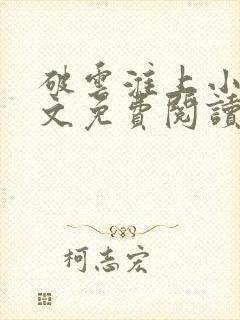 破雲淮上小
文免費閱讀
柯志宏